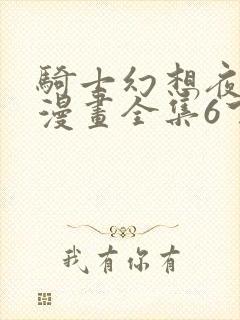 騎士幻想夜
漫畫全集6下
我有你有